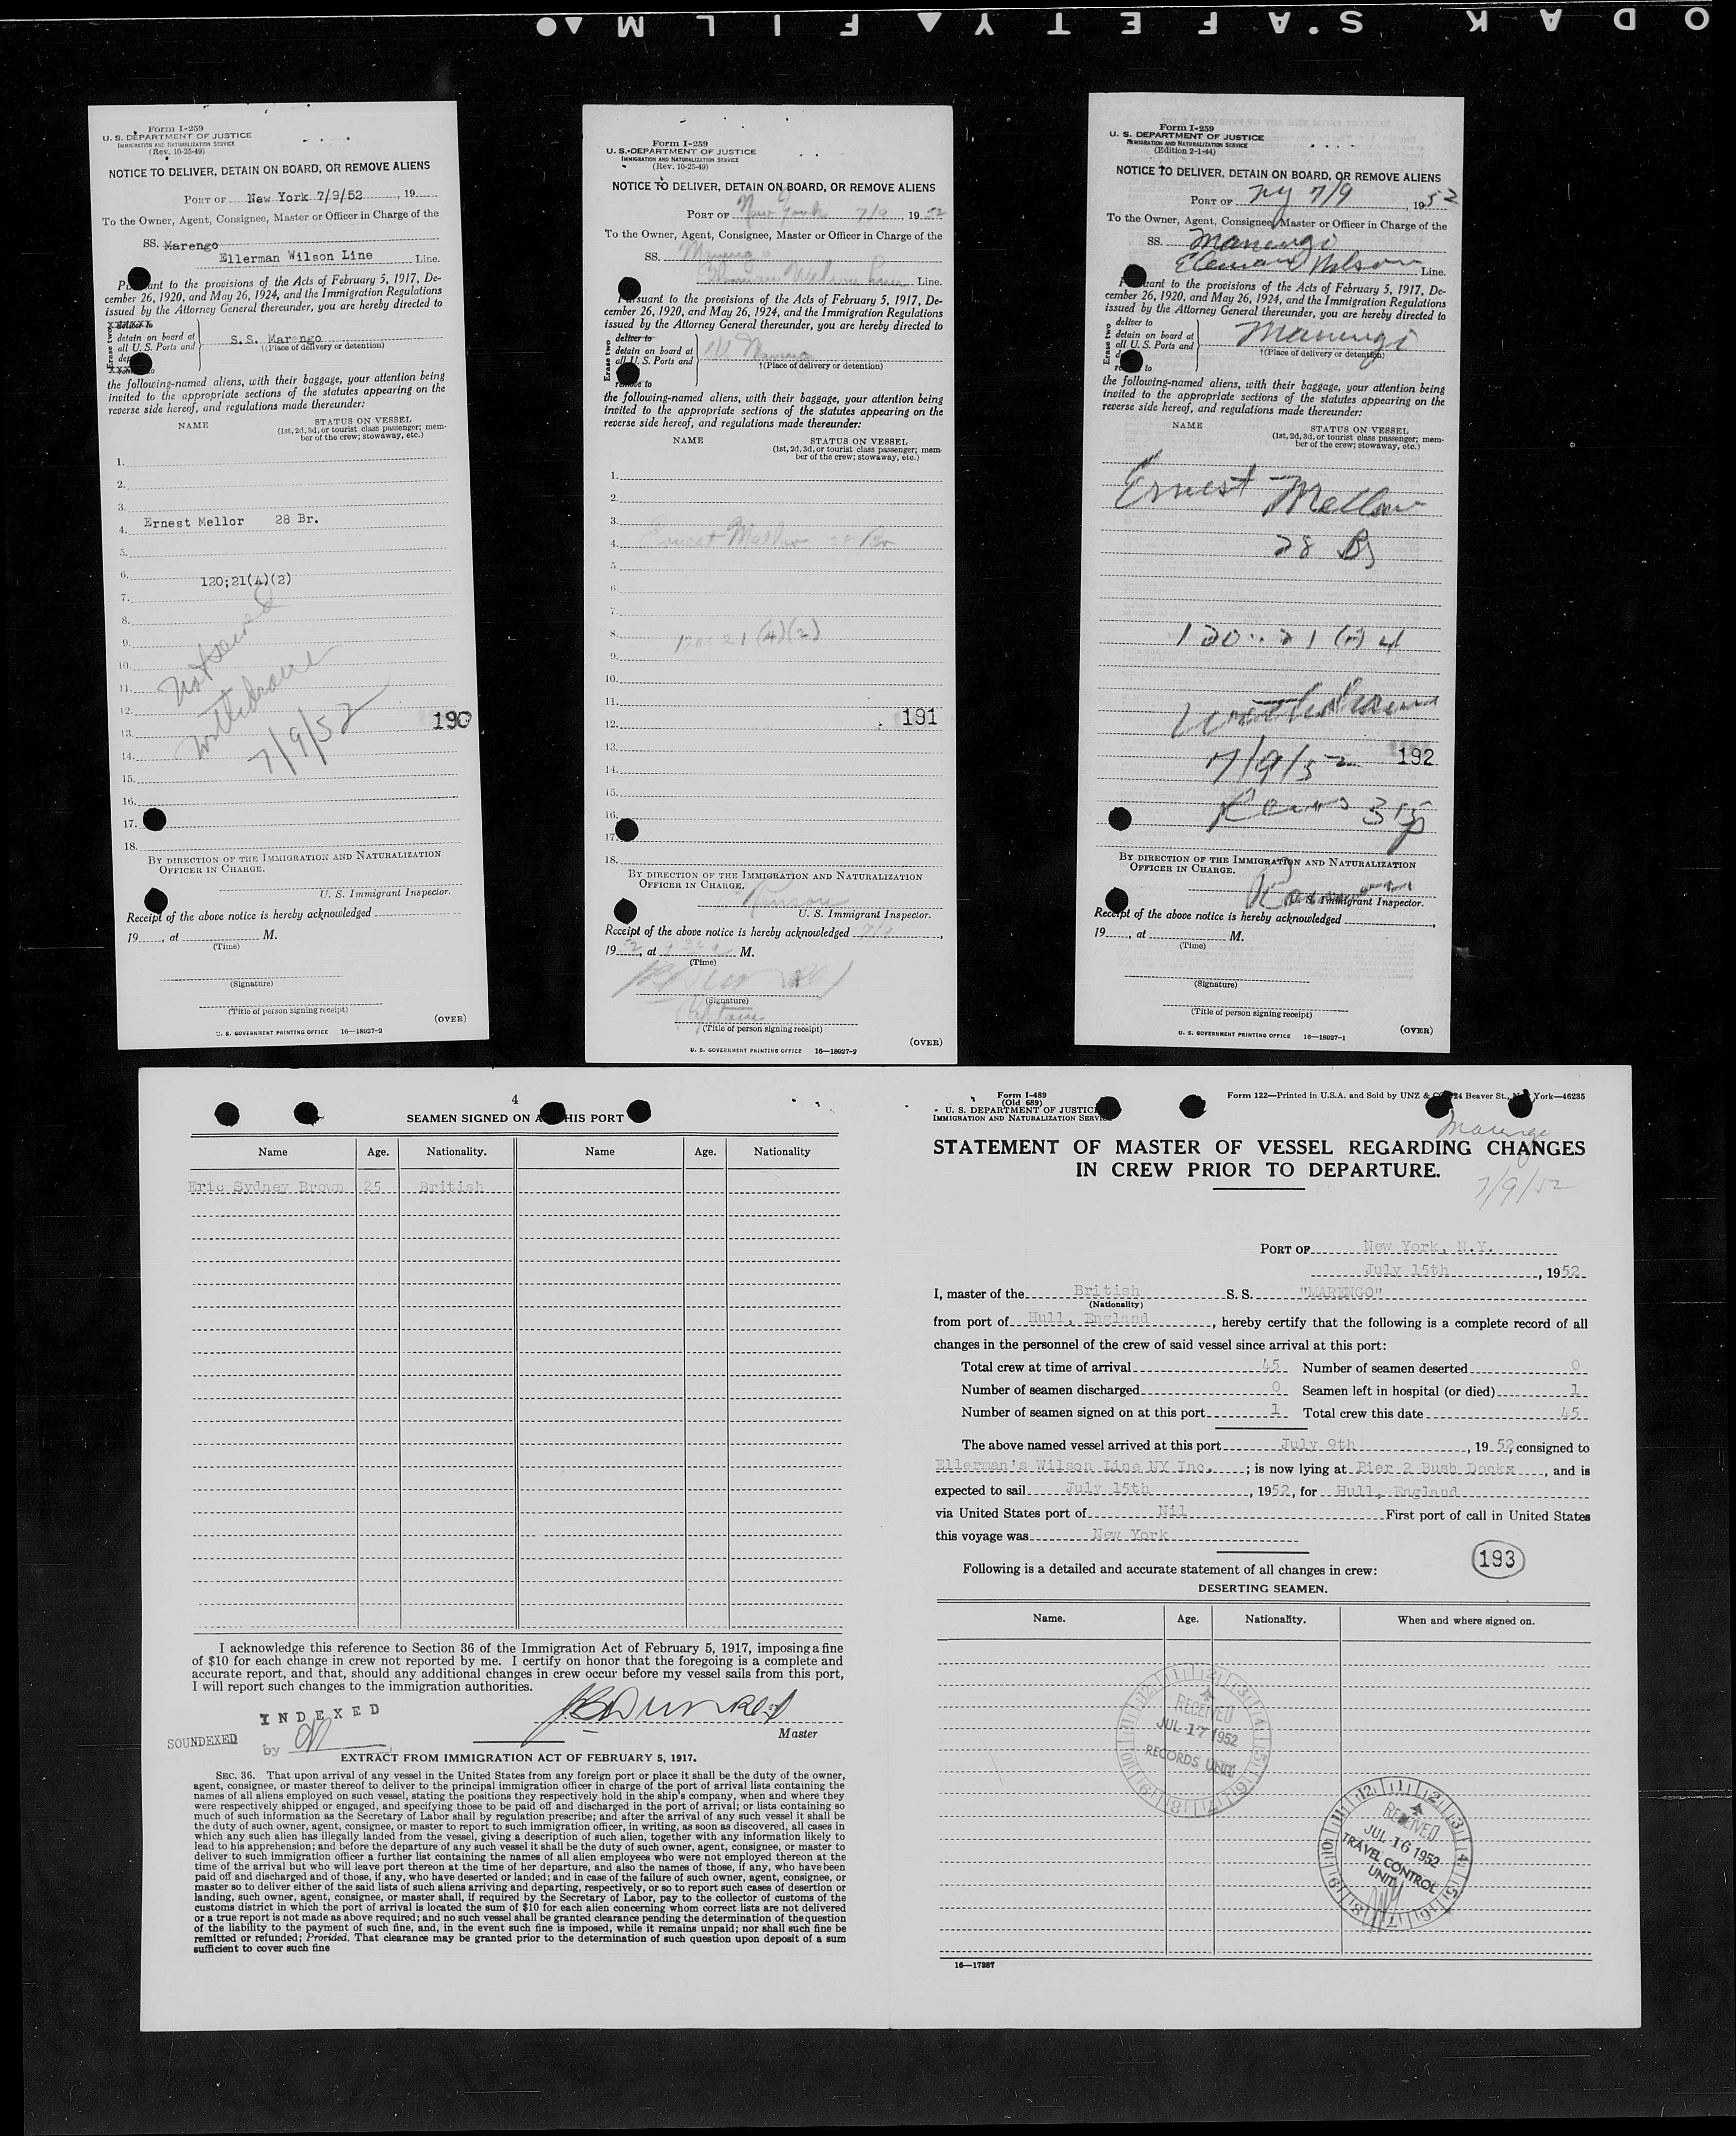 KODAK·SAFETY▲FILM
Form I-259
U. S. DEPARTMENT OF JUSTICE
IMMIGRATION AND NATURALIZATION SERVICE
(Rev. 10-25-49)
NOTICE TO DELIVER, DETAIN ON BOARD, OR REMOVE ALIENS
PORT OF New York 7/9/52, 19
To the Owner, Agent, Consignee, Master or Officer in Charge of the
SS. Marengo
Ellerman Wilson Line Line.
Pursuant to the provisions of the Acts of February 5, 1917, De-
cember 26, 1920, and May 26, 1924, and the Immigration Regulations
issued by the Attorney General thereunder, you are hereby directed to
Erase two
deliver to
detain on board at
all U. S. Ports and
S.S. Marengo
†(Place of delivery or detention)
remove to
the following-named aliens, with their baggage, your attention being
invited to the appropriate sections of the statutes appearing on the
reverse side hereof, and regulations made thereunder:
NAME STATUS ON VESSEL
(1st, 2d, 3d, or tourist class passenger; mem-
ber of the crew; stowaway, etc.)
1.
2.
3.
4. Ernest Mellor 28 Br.
5.
6. 120;21(A)(2)
7.
8.
9.
10. Not served
11.
12. withdrawn
13. 190
14. 7/9/52
15.
16.
17.
18.
BY DIRECTION OF THE IMMIGRATION AND NATURALIZATION
OFFICER IN CHARGE.
U. S. Immigrant Inspector.
Receipt of the above notice is hereby acknowledged
19, at M.
(Time)
(Signature)
(Title of person signing receipt)
U. S. GOVERNMENT PRINTING OFFICE 16—18027-2 (OVER)
Form I-259
U. S. DEPARTMENT OF JUSTICE
IMMIGRATION AND NATURALIZATION SERVICE
(Rev. 10-25-49)
NOTICE TO DELIVER, DETAIN ON BOARD, OR REMOVE ALIENS
PORT OF New York 7/9, 19 52
To the Owner, Agent, Consignee, Master or Officer in Charge of the
SS. Marengo
Ellerman Wilson Line Line.
Pursuant to the provisions of the Acts of February 5, 1917, De-
cember 26, 1920, and May 26, 1924, and the Immigration Regulations
issued by the Attorney General thereunder, you are hereby directed to
Erase two
deliver to
detain on board at
all U. S. Ports and
SS Marengo
†(Place of delivery or detention)
remove to
the following-named aliens, with their baggage, your attention being
invited to the appropriate sections of the statutes appearing on the
reverse side hereof, and regulations made thereunder:
NAME STATUS ON VESSEL
(1st, 2d, 3d, or tourist class passenger; mem-
ber of the crew; stowaway, etc.)
1.
2.
3.
4. Ernest Mellor 28 Br
5.
6.
7.
8. 120:21 (4)(2)
9.
10.
11.
12. 191
13.
14.
15.
16.
17.
18.
BY DIRECTION OF THE IMMIGRATION AND NATURALIZATION
OFFICER IN CHARGE.
U. S. Immigrant Inspector.
Receipt of the above notice is hereby acknowledged 7/9,
19 52, at M.
(Time)
(Signature)
Captain
(Title of person signing receipt)
U. S. GOVERNMENT PRINTING OFFICE 16—18027-2 (OVER)
Form I-259
U. S. DEPARTMENT OF JUSTICE
IMMIGRATION AND NATURALIZATION SERVICE
(Edition 2-1-44)
NOTICE TO DELIVER, DETAIN ON BOARD, OR REMOVE ALIENS
PORT OF NY 7/9, 19 52
To the Owner, Agent, Consignee, Master or Officer in Charge of the
SS. Marengo
Wilson Line.
Pursuant to the provisions of the Acts of February 5, 1917, De-
cember 26, 1920, and May 26, 1924, and the Immigration Regulations
issued by the Attorney General thereunder, you are hereby directed to
Erase two
deliver to
detain on board at
all U. S. Ports and
Marengo
†(Place of delivery or detention)
remove to
the following-named aliens, with their baggage, your attention being
invited to the appropriate sections of the statutes appearing on the
reverse side hereof, and regulations made thereunder:
NAME STATUS ON VESSEL
(1st, 2d, 3d, or tourist class passenger; mem-
ber of the crew; stowaway, etc.)
Ernest Mellor
28 Br
withdrawn
7/9/52 192
BY DIRECTION OF THE IMMIGRATION AND NATURALIZATION
OFFICER IN CHARGE.
U. S. Immigrant Inspector.
Receipt of the above notice is hereby acknowledged,
19, at M.
(Time)
(Signature)
(Title of person signing receipt)
U. S. GOVERNMENT PRINTING OFFICE 16—18027-1 (OVER)
4
SEAMEN SIGNED ON AT THIS PORT
Name Age. Nationality. Name Age. Nationality
Eric Sydney Brown 25 British
I acknowledge this reference to Section 36 of the Immigration Act of February 5, 1917, imposing a fine
of $10 for each change in crew not reported by me. I certify on honor that the foregoing is a complete and
accurate report, and that, should any additional changes in crew occur before my vessel sails from this port,
I will report such changes to the immigration authorities.
INDEXED
SOUNDEXED
by
Master
EXTRACT FROM IMMIGRATION ACT OF FEBRUARY 5, 1917.
SEC. 36. That upon arrival of any vessel in the United States from any foreign port or place it shall be the duty of the owner,
agent, consignee, or master thereof to deliver to the principal immigration officer in charge of the port of arrival lists containing the
names of all aliens employed on such vessel, stating the positions they respectively hold in the ship's company, when and where they
were respectively shipped or engaged, and specifying those to be paid off and discharged in the port of arrival; or lists containing so
much of such information as the Secretary of Labor shall by regulation prescribe; and after the arrival of any such vessel it shall be
the duty of such owner, agent, consignee, or master to report to such immigration officer, in writing, as soon as discovered, all cases in
which any such alien has illegally landed from the vessel, giving a description of such alien, together with any information likely to
lead to his apprehension; and before the departure of any such vessel it shall be the duty of such owner, agent, consignee, or master to
deliver to such immigration officer a further list containing the names of all alien employees who were not employed thereon at the
time of the arrival but who will leave port thereon at the time of her departure, and also the names of those, if any, who have been
paid off and discharged and of those, if any, who have deserted or landed; and in case of the failure of such owner, agent, consignee, or
master so to deliver either of the said lists of such aliens arriving and departing, respectively, or so to report such cases of desertion or
landing, such owner, agent, consignee, or master shall, if required by the Secretary of Labor, pay to the collector of customs of the
customs district in which the port of arrival is located the sum of $10 for each alien concerning whom correct lists are not delivered
or a true report is not made as above required; and no such vessel shall be granted clearance pending the determination of the question
of the liability to the payment of such fine, and, in the event such fine is imposed, while it remains unpaid; nor shall such fine be
remitted or refunded; Provided, That clearance may be granted prior to the determination of such question upon deposit of a sum
sufficient to cover such fine
Form I-489
(Old 689)
U. S. DEPARTMENT OF JUSTICE
IMMIGRATION AND NATURALIZATION SERVICE
Form 122—Printed in U.S.A. and Sold by UNZ & CO., 24 Beaver St., New York—46235
Marengo
STATEMENT OF MASTER OF VESSEL REGARDING CHANGES
IN CREW PRIOR TO DEPARTURE.
7/9/52
PORT OF New York, N.Y.
July 15th, 1952
I, master of the British S. S. "MARENGO"
(Nationality)
from port of Hull, England, hereby certify that the following is a complete record of all
changes in the personnel of the crew of said vessel since arrival at this port:
Total crew at time of arrival 45 Number of seamen deserted 0
Number of seamen discharged 0 Seamen left in hospital (or died) 1
Number of seamen signed on at this port 1 Total crew this date 45
The above named vessel arrived at this port July 9th, 1952, consigned to
Ellerman's Wilson Line NY Inc.; is now lying at Pier 2 Bush Docks, and is
expected to sail July 15th, 1952, for Hull, England
via United States port of Nil First port of call in United States
this voyage was New York
193
Following is a detailed and accurate statement of all changes in crew:
DESERTING SEAMEN.
Name. Age. Nationality. When and where signed on.
RECEIVED
JUL 17 1952
RECORDS UNIT
RECEIVED
JUL 16 1952
TRAVEL CONTROL
UNIT
16—17387